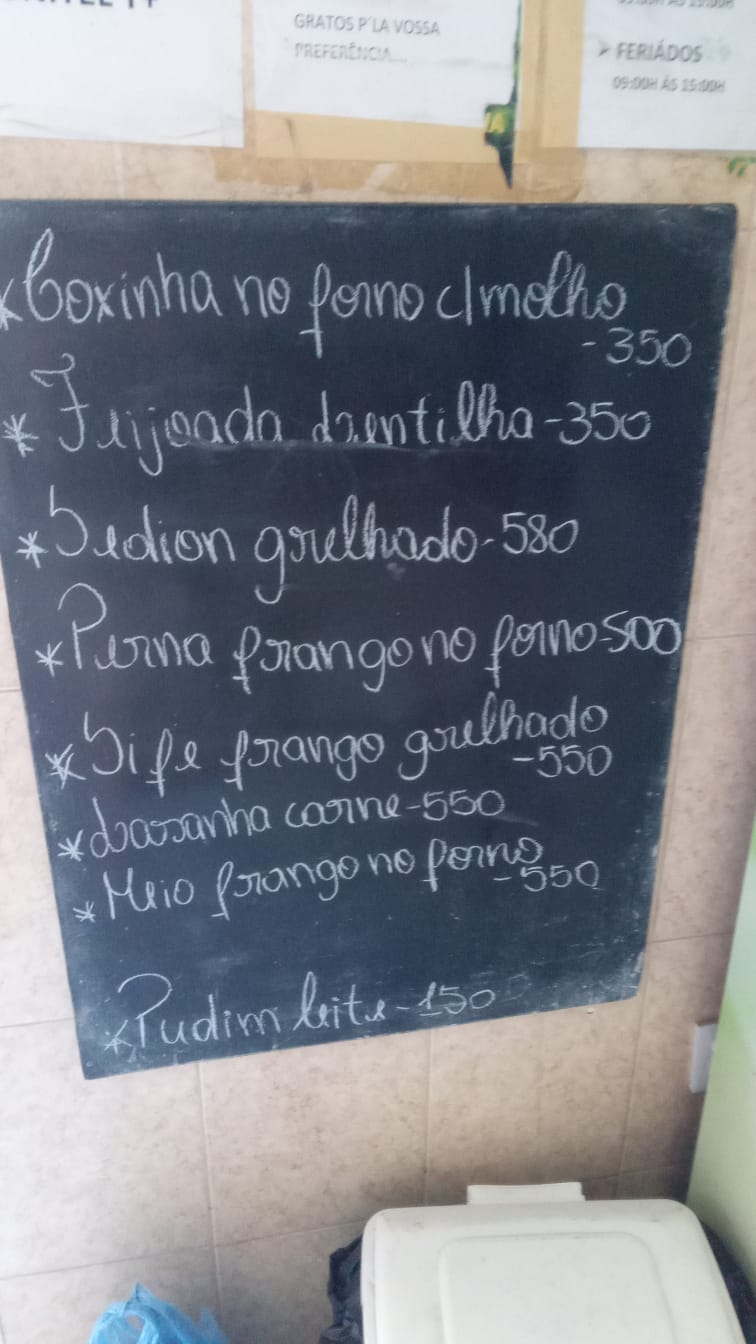 GRATOS P'LA VOSSA
PREFERÊNCIA...
➤ FERIÁDOS
09:00H ÁS 15:00H
* Coxinha no forno c/molho
- 350
* Feijoada Lentilha - 350
* Bedion grelhado - 580
* Perna frango no forno - 500
* Bife frango grelhado
- 550
* Lasanha carne - 550
* Meio frango no forno
- 550
* Pudim leite - 150